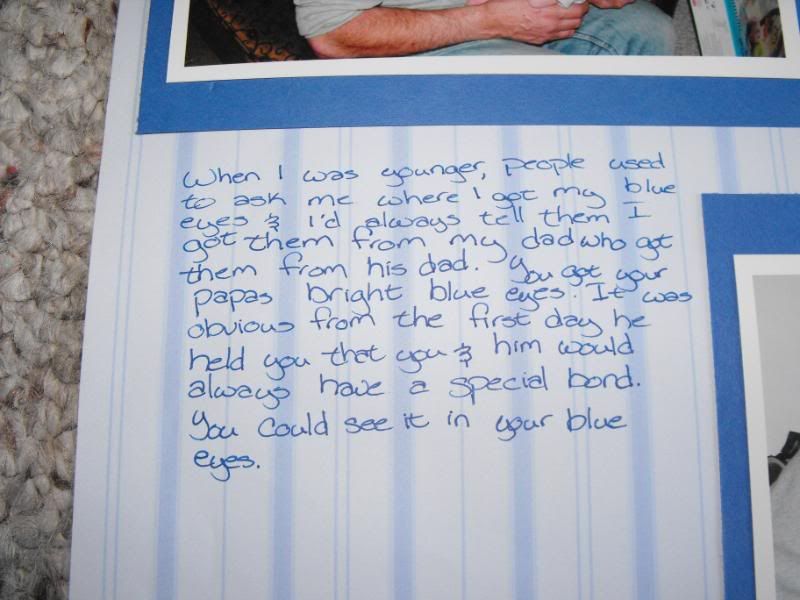 When I was younger, people used
to ask me where I got my blue
eyes & I'd always tell them I
got them from my dad who got
them from his dad. You got your
papas bright blue eyes. It was
obvious from the first day he
held you that you & him would
always have a special bond.
You could see it in your blue
eyes.